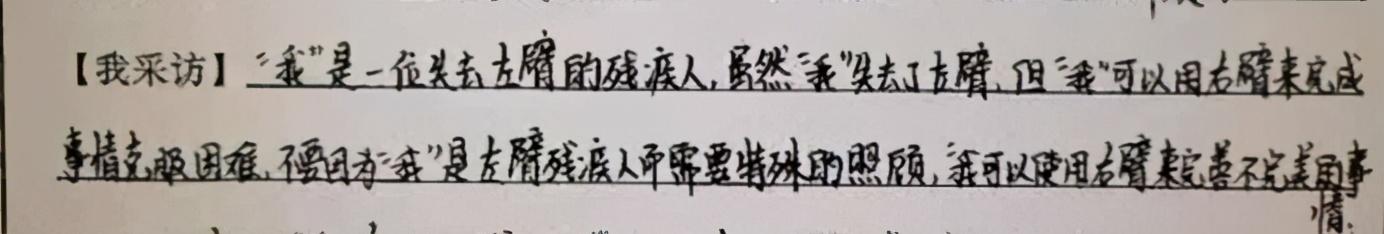 【我采访】“我”是一位失去左臂的残疾人,虽然“我”失去了左臂,但“我”可以用右臂来完成
事情克服困难,不要因为“我”是左臂残疾人而需要特殊的照顾,我可以使用右臂来完善不完美的事
情.